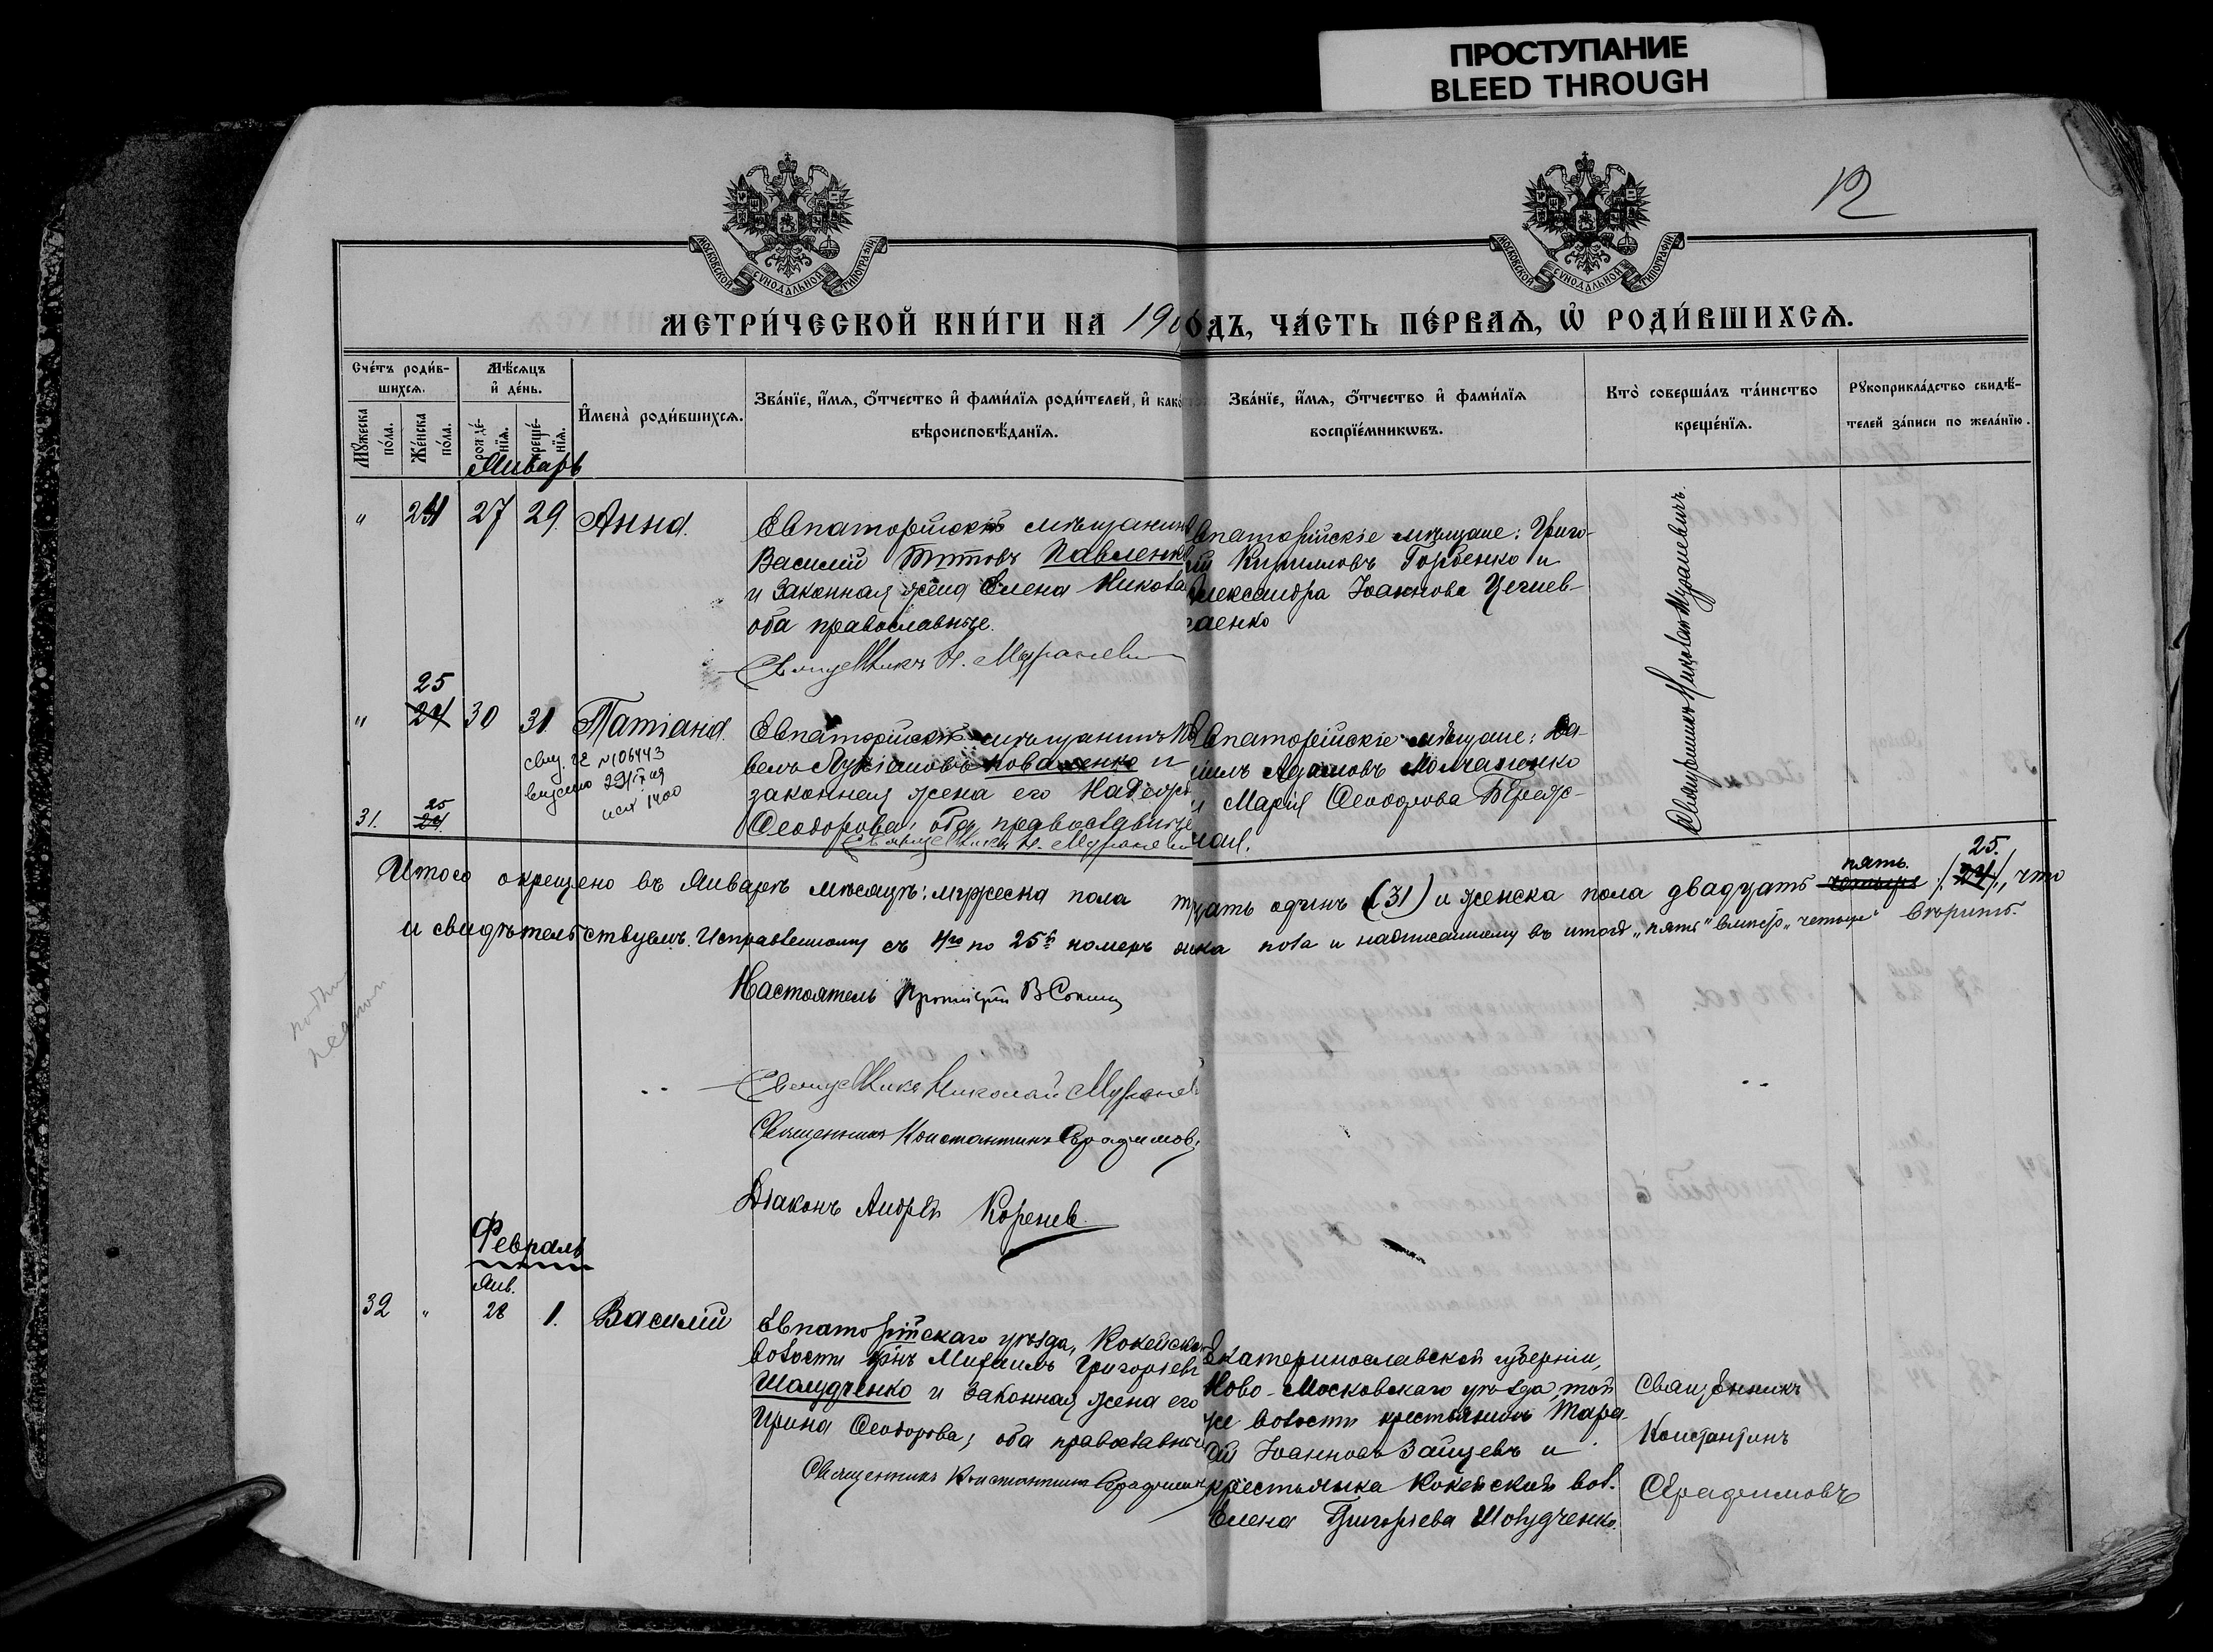 ПРОСТУПАНИЕ
BLEED THROUGH
12
МОСКОВСКОЙ СѴНОДАЛЬНОЙ ТИПОГРАФІИ
МОСКОВСКОЙ СѴНОДАЛЬНОЙ ТИПОГРАФІИ
МЕТРИ́ЧЕСКОЙ КНИ́ГИ НА 190 ОДЪ, ЧА́СТЬ ПЕ́РВАѦ, Ѡ҆ РОДИ́ВШИХСѦ.
Сче́тъ роди́в-
шихсѧ.
Мѣ́сѧцъ
и҆ де́нь.
И҆мена̀ роди́вшихсѧ.
Зва́нїе, и҆́мѧ, о҆́тчество и҆ фами́лїѧ роди́телей, и҆ како
вѣроисповѣ́данїѧ.
Зва́нїе, и҆́мѧ, о҆́тчество и҆ фами́лїѧ
воспрїе́мникѡвъ.
Кто̀ соверша́лъ та́инство
креще́нїѧ.
Рꙋкоприкла́дство свидѣ́-
телей за́писи по жела́нїю.
Мꙋ́жеска
по́ла.
Же́нска
по́ла.
рожде́-
нїѧ.
креще́-
нїѧ.
Январь
" 24 27 29. Анна.
Евпаторійскій мѣщанинъ
Василій Титовъ Павленк
и законная жена Елена Никола
оба православные.
Священникъ Н. Муралеви
впаторійскіе мѣщане: Григо-
ій Кирилловъ Горбенко и
лександра Іоаннова
аенко
Священникъ Николай Муралевичъ.
25
" 24 30 31. Татіана.
свид. № 106443
1400
Евпаторійскій мѣщанинъ Па
велъ Лукіановъ Коваленко и
законная жена его Надежд
Ѳеодорова, оба православные
Священникъ Н. Муралеви
впаторійскіе мѣщане:
Адамовъ Молчаненко
и Марія Ѳеодорова
ная.
25
31. 24.
Итого окрещено въ Январѣ мѣсяцѣ: мужеска пола тридцать одинъ (31) и женска пола двадцать четыре пять. /. 24 25. /., что
и свидѣтельствуемъ. Исправленному съ 4го по 25й номеръ женска пола и надписанному въ итогѣ „пять" вмѣсто „четыре" вѣрить.
Настоятель Протоіерей В Сокин
Священникъ Николай Муралев
Священникъ Константинъ Серафимов
Діаконъ Андрей Коренев
Февраль
Янв.
32 " 28 1. Василій
Евпаторійскаго уѣзда, Кокейской
волости крнъ Михаилъ Григорьевъ
Шалудченко и законная жена его
Ирина Ѳеодорова; оба православные
Священникъ Константинъ Серафимов
Екатеринославской губерніи,
Ново-Московскаго уѣзда, той
же волости крестьянинъ
Іоанновъ Зайцевъ и
крестьянка Кокейской вол.
Елена Григорьева Шолудченко.
Священникъ
Константинъ
Серафимовъ